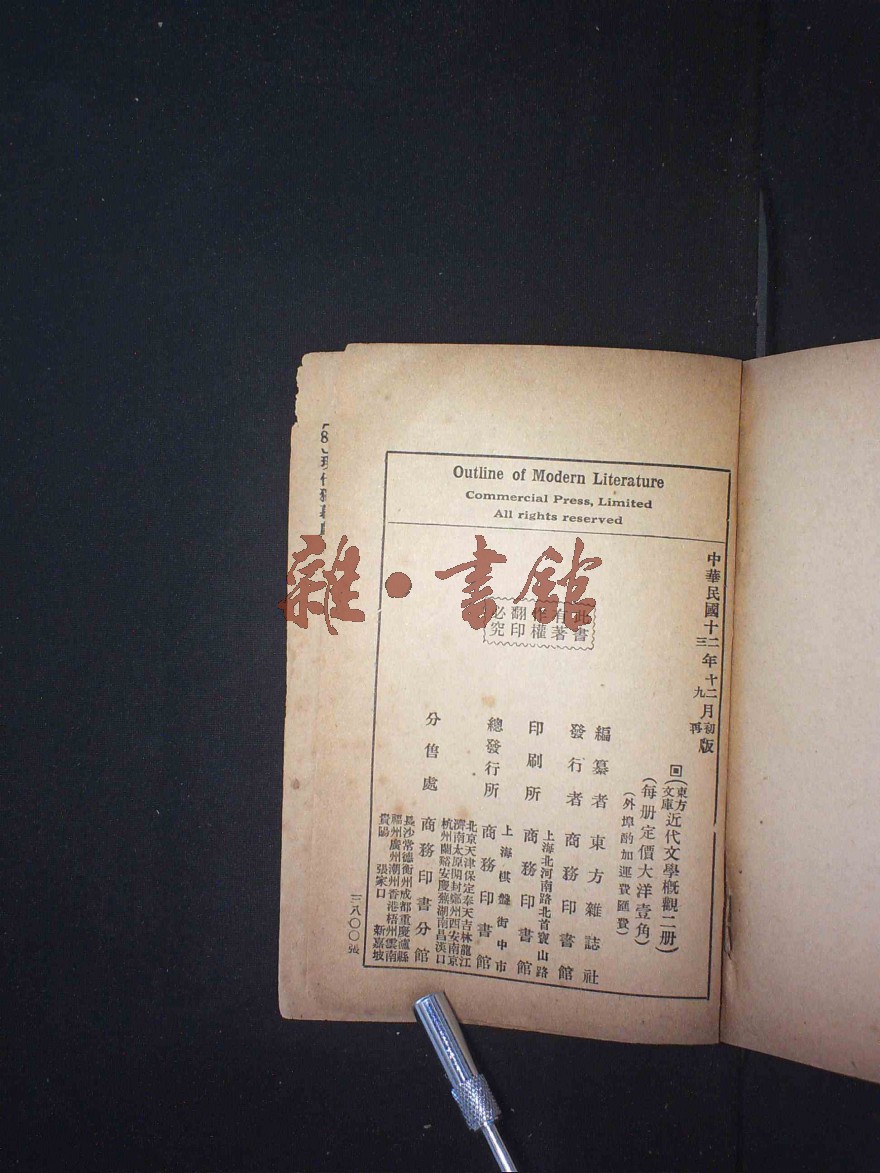 Outline of Modern Literature
Commercial Press, Limited
All rights reserved
中華民國十二年十二月初版
三 九 再
此書
有著
作權
翻印
必究
(東方文庫)近代文學概觀二册
(每册定價大洋壹角)
(外埠酌加運費匯費)
編纂者 東方雜誌社
發行者 商務印書館
上海北河南路北首寶山路
印刷所 商務印書館
上海棋盤街中市
總發行所 商務印書館
北京天津保定奉天吉林龍江
濟南太原開封鄭州西安南京
杭州蘭谿安慶蕪湖南昌漢口
分售處 商務印書分館
長沙常德衡州成都重慶瀘縣
福州廣州潮州香港梧州雲南
貴陽 張家口 新嘉坡
三八〇〇張
雜·書館